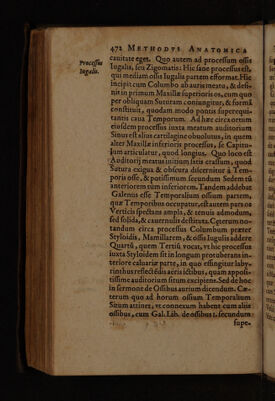 472 METHODVS ANATOMICA
Processus
Iugalis.
cauitate eget. Quo autem ad processum ossis
Iugalis, seu Zigomatis: Hic sane processus est,
qui mediam ossis Iugalis partem efformat. Hic
incipit cum Columbo ab auris meatu, & defi-
nit in primum Maxillæ superioris os, cum quo
per obliquam Suturam coniungitur, & formã
constituit, quodam modo pontis superequi-
tantis caua Temporum. Ad hæc circa ortum
eiusdem processus iuxta meatum auditorium
Sinus est alius cartilagine obuolutus, in quem
alter Maxillæ inferioris processus, se Capitu-
lum articulatur, quod longius. Quo loco est
Auditorij meatus initium satis crassum, quod
Satura exigua & obscura discernitur à Tem-
poris osse, & potissimum secundum Sedem tũ
anteriorem tum inferiorem. Tandem addebat
Galenus esse Temporalium ossium partem,
quæ Temporibus occupatur, est autem pars ea
Verticis spectans ampla, & tenuis admodum,
sed solida, & cauernulis destituta. Cęterum no-
tandum circa processus Columbum præter
Styloidis, Mamillarem, & ossis Iugalis addere
Quartũ, quem Tertiũ vocat, vt hic processus
iuxta Styloidem sit in longum protuberans in-
teriore caluariæ parte, in quo effingitur laby-
rinthus reflectẽdis aeris ictibus, quam apposi-
tissime auditorium situm excipiens. Sed de hoc
in sermone de Ossibus aurium dicendum. Cæ-
terum quo ad horum ossium Temporalium
Situm attinet, vt connexum habent cum alijs
ossibus, cum Gal. Lib. de ossibus 1. secundum
supe-